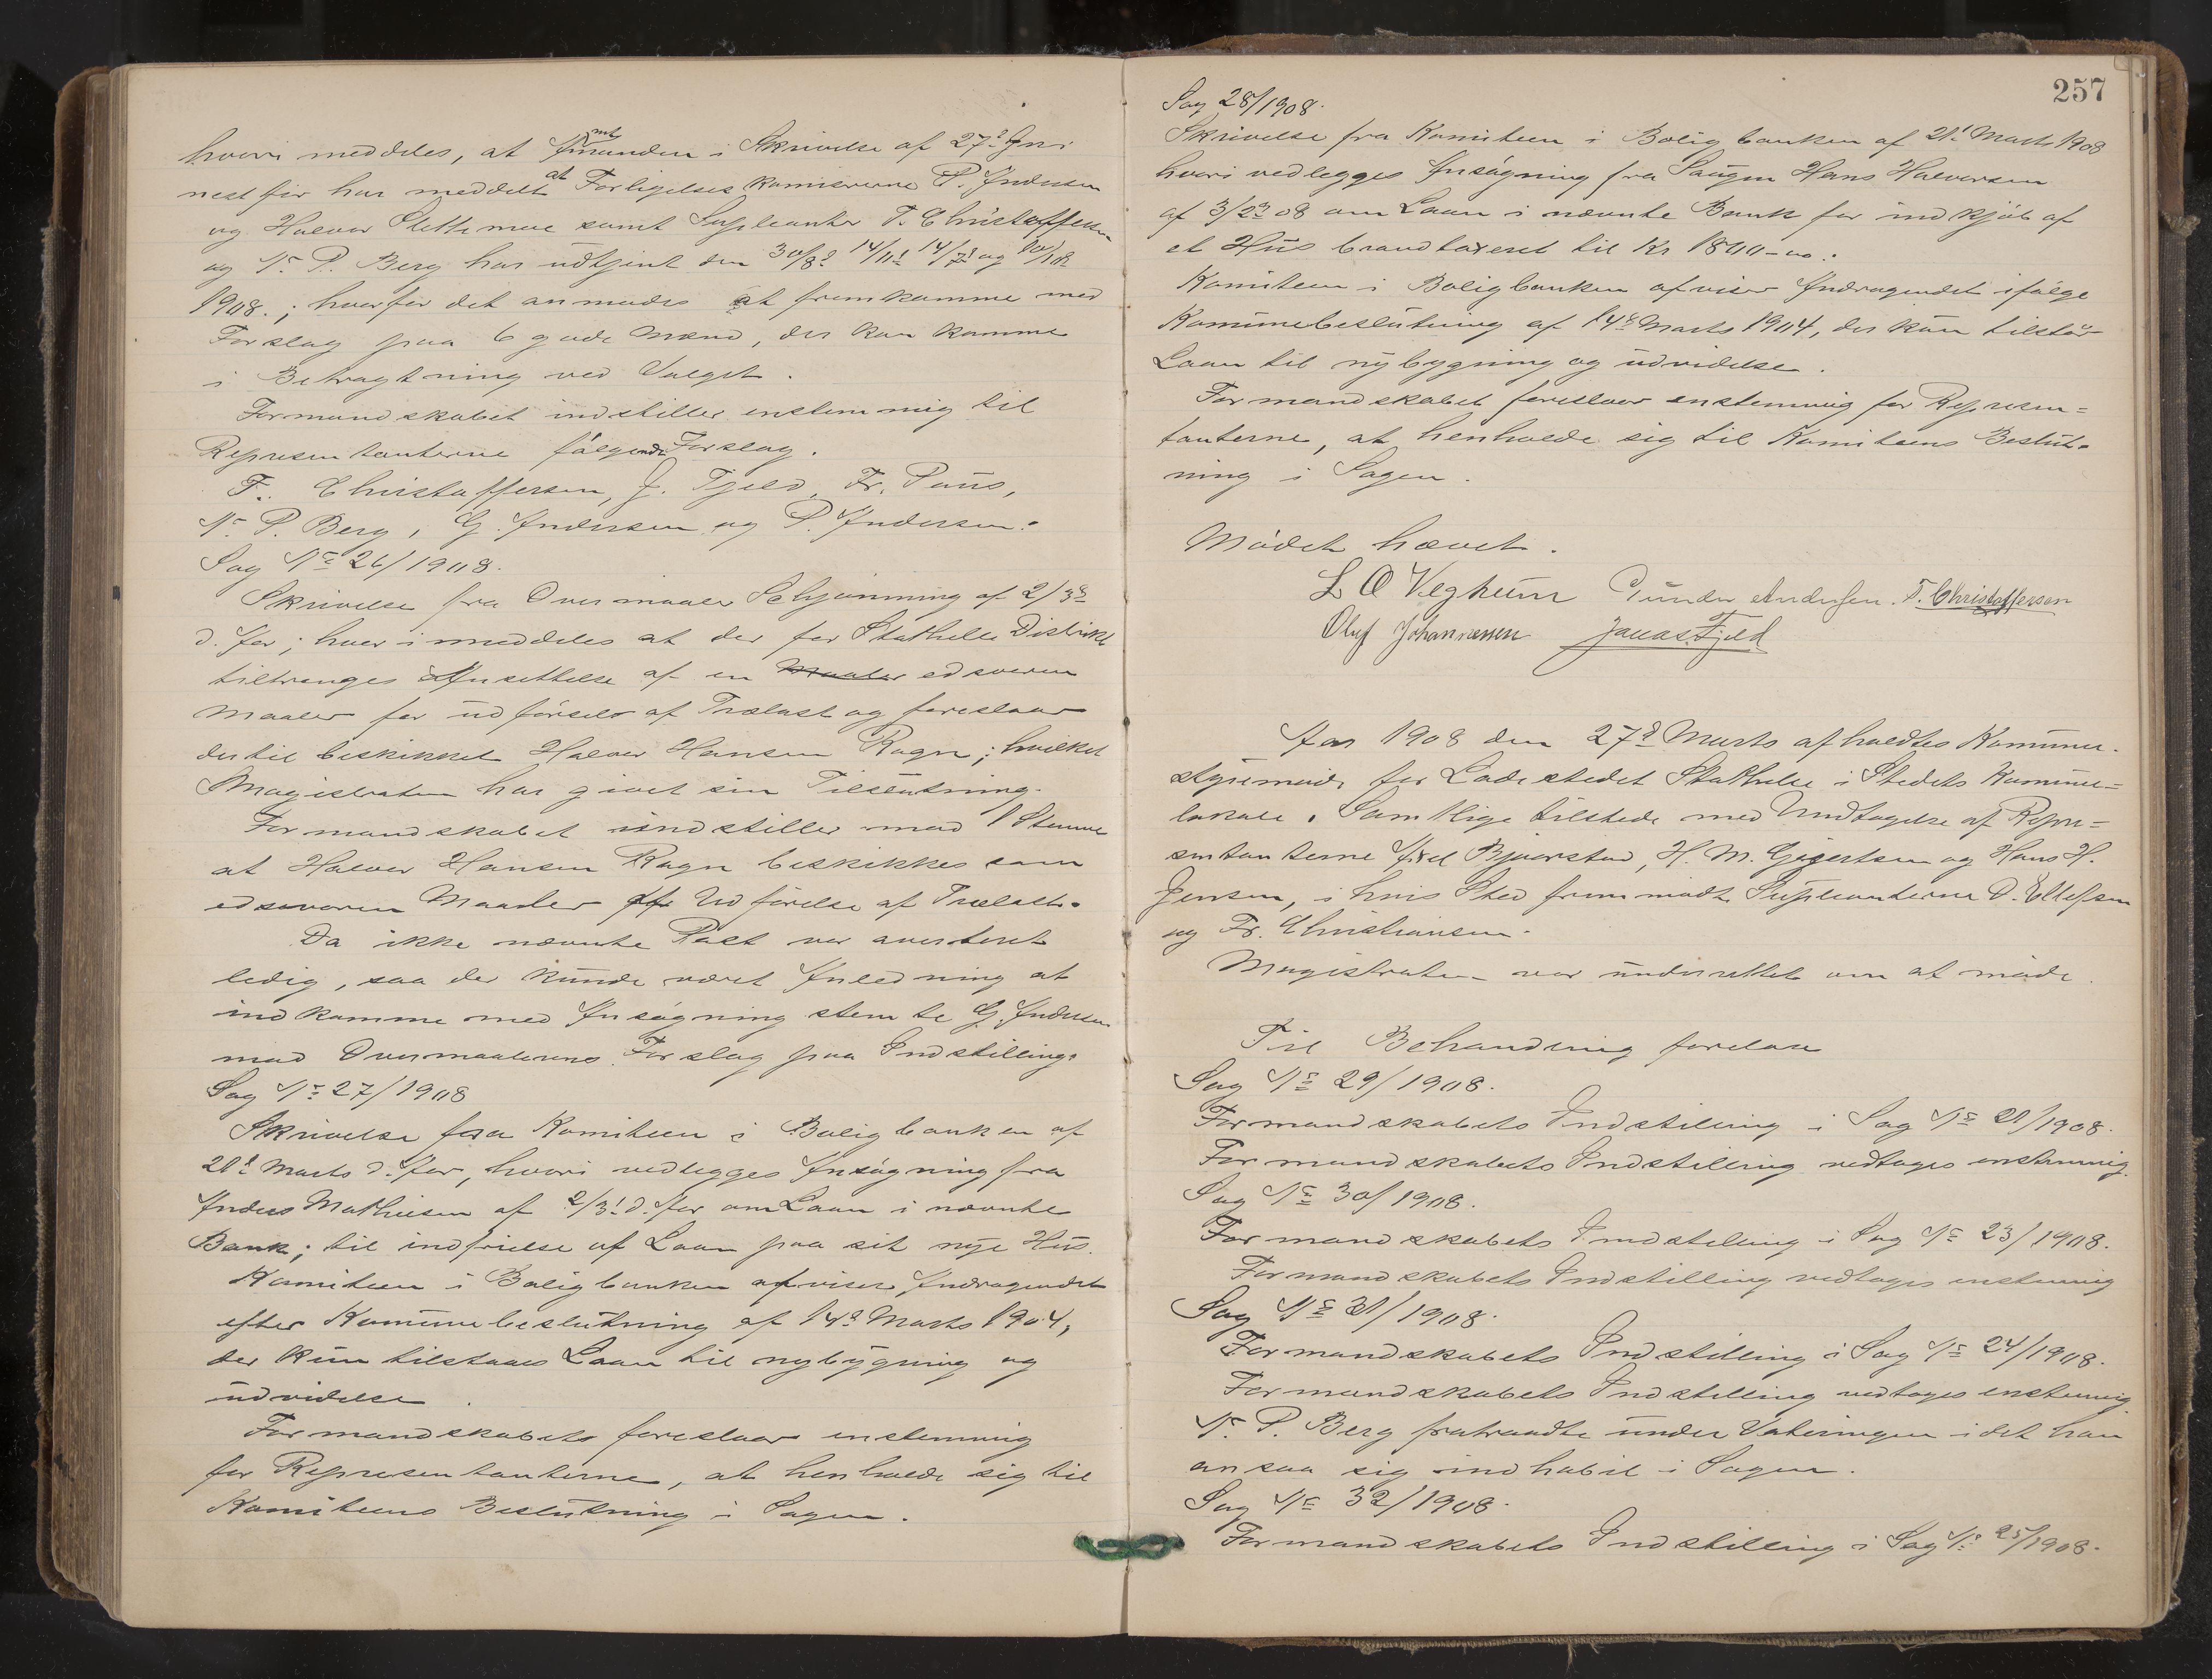 hvori meddeles, at Amtmanden i Skrivelse af 27de Juni
nest før har meddelt at Forligelseskomisærerne P. Andersen
og Halvor Slettemoe samt Supleanter T. Christoffersen
og N. P. Berg har udtjent den 30/8 14/11 14/7 og
1908.; hvorfor det anmodes at fremkomme med
Forslag paa 6 gode Mænd, der kan komme
i Betragtning ved Valget.
Formandskabet indstiller enstemmig til
Representanterne følgende Forslag.
T. Christoffersen, J. Fjeld, Fr. Paus,
N. P. Berg, G. Andersen og P. Andersen.
Sag No 26/1908.
Skrivelse fra Overmaaler Schjønning af 2/3
d. Aar; hvor i meddeles at der for Stathelle Distrikt
tiltrænges Ansettelse af en Maaler edsvoren
Maaler for udførsels af Trælast og foreslaar
dertil beskikket Halvor Hansen Rogn; hvilket
Magistraten har givet sin Tilslutning.
Formandskabet indstiller mod 1 Stemme
at Halvor Hansen Rogn beskikkes som
edsvoren Maaler for Udførelse af Trælast.
Da ikke nævnte Post var averteret
ledig, saa der kunde været Anledning at
indkomme med Ansøgning stemte G. Andersen
mod Overmaalerens Forslag paa Indstilling.
Sag No 27/1908
Skrivelse fra Komiteen i Boligbanken af
21de Marts d. Aar, hvori vedlegges Ansøgning fra
Anders Mathiesen af 2/3 d. Aar om Laan i nævnte
Bank; til indfrielse af Laan paa sit nye Hus.
Komiteen i Boligbanken afviser Andragendet
efter Kommunebeslutning af 14de Marts 1904,
der kun tilstaaes Laan til nybygning og
udvidelse.
Formandskabets foreslaar enstemmig
for Representanterne, at henholde sig til
Komiteens Beslutning i Sagen.
257
Sag 28/1908.
Skrivelse fra Komiteen i Boligbanken af 21de Marts 1908
hvori vedlegges Ansøgning fra Hans Halvorsen
af 3/2 08 om Laan i nævnte Bank for indkjøb af
et Hus brandtaxeret til Kr 1800-00.
Komiteen i Boligbanken afviser Andragendet ifølge
Komunebeslutning af 14de Marts 1904, der kun tilstaar
Laan til nybygning og udvidelse.
Formandskabet foreslaar enstemmig for Represen=
tanterne, at henholde sig til Komiteens Beslut=
ning i Sagen.
Mødet hævet.
L O Vegheim Gunder Andersen. T. Christoffersen
Oluf Johannessen Jonas Fjeld
Aar 1908 den 27de Marts afholdtes Kommune-
styremøde for Ladestedet Stathelle i Stedets Kommune=
lokale. Samtlige tilstede med Undtagelse af Repre=
sentanterne Axel Bjørstad, H. M. Gjgertsen og Hans H.
Jensen, i hvis Sted fremmødte Supleanterne O. Ellefsen
og Fr. Christiansen.
Magistraten var underrettet om at møde.
Til Behandling forelaa
Sag No 29/1908.
Formandskabets Indstilling i Sag No 21/1908.
Formandskabets Indstilling vedtages enstemmig.
Sag No 30/1908.
Formandskabets Indstilling i Sag No 23/1908.
Formandskabets Indstilling vedtages enstemmig
Sag No 31/1908.
Formandskabets Indstilling i Sag No 24/1908.
Formandskabets Indstilling vedtages enstemmig.
N. P. Berg fratraadte under Voteringen idet han
ansaa sig inhabil i Sagen.
Sag No 32/1908.
Formandskabets Indstilling i Sag No 25/1908.